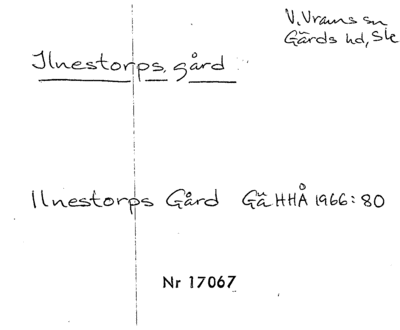 V. Vrams sn
Gärds hd, Sk
Ilnestorps gård
Ilnestorps Gård Gä HHÅ 1966:80
Nr 17067